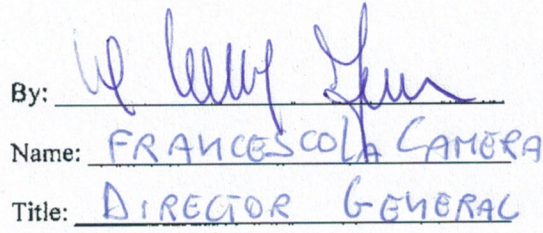 By:
Name: FRANCESCO LA CAMERA
Title: DIRECTOR GENERAL